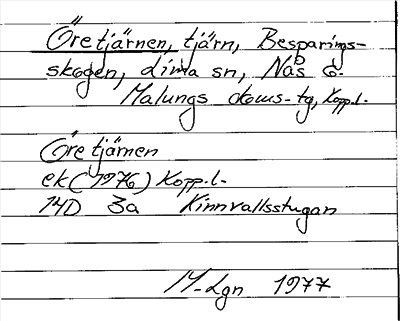 Öretjärnen, tjärn, Besparings-
skogen, Lima sn, Nås o.
Malungs doms-tg, Kopp.l.
Öretjärnen
ek (1976) Kopp.l.
14D 3a Kinnvallsstugan
M-Lgn 1977